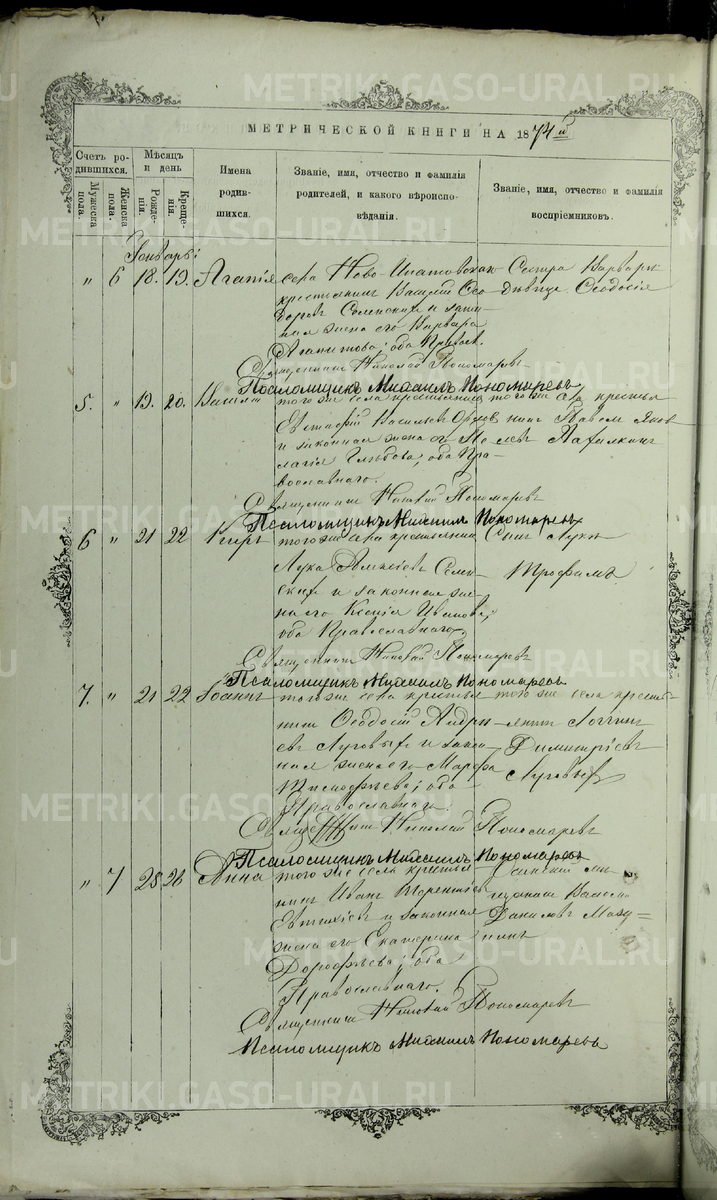 METRIKI.GASO-URAL.RU
МЕТРИЧЕСКОЙ КНИГИ НА 1874й
Счетъ родившихся.
Мужеска пола.
Женска пола.
Мѣсяцъ и день
Рожденія.
Крещенія.
Имена родившихся.
Званіе, имя, отчество и фамилія родителей, и какого вѣроисповѣданія.
Званіе, имя, отчество и фамилія воспріемниковъ.
Январь:
„ 6 18. 19. Агапія
села Ново-Ипатовскаго
крестьянинъ Василій Ѳео-
доровъ и закон-
ная жена его Варвара
Агапитова; оба Правосл.
Сестра Варвары
дѣвица Ѳеодосія
Священникъ Николай Пономаревъ
Псаломщикъ Михаилъ Пономаревъ
5. „ 19. 20. Василій
того же села крестьянинъ
Евстафій Васильевъ
и законная жена его Пе-
лагія Глѣбова; оба Пра-
вославнаго.
того же села крестья-
нинъ Павелъ Яков-
левъ
Священникъ Николай Пономаревъ
Псаломщикъ Михаилъ Пономаревъ
6 „ 21 22 Киръ
того же села крестьянинъ
Лука и законная же-
на его Ксенія Иванова;
оба Православнаго
Сынъ Луки
Трофимъ
Священникъ Николай Пономаревъ
Псаломщикъ Михаилъ Пономаревъ
7. „ 21 22 Іоаннъ
того же села крестья-
нинъ Ѳеодосій Андре-
евъ Луговыхъ и закон-
ная жена его Марѳа
Тимофѣева; оба
Православнаго.
того же села кресть-
янинъ Логгинъ
Димитріевъ
Луговыхъ
Священникъ Николай Пономаревъ
Псаломщикъ Михаилъ Пономаревъ
„ 7 25 26 Анна
того же села крестья-
нинъ Иванъ Терентіевъ
Евтихіевъ и законная
жена его Екатерина
Дорофѣева; оба
Православнаго.
мѣ-
щанинъ
Даниловъ
Священникъ Николай Пономаревъ
Псаломщикъ Михаилъ Пономаревъ